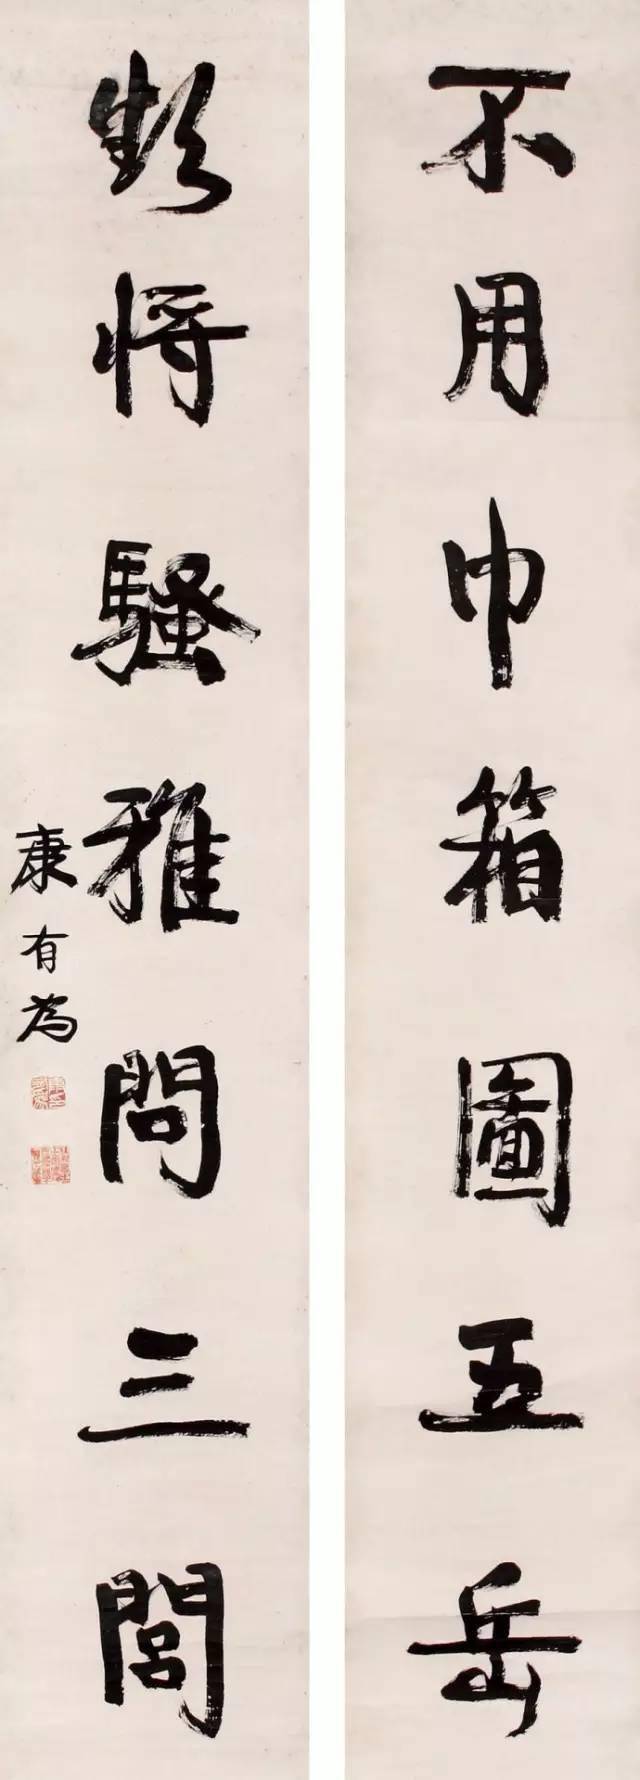 不用巾箱圖五岳
歎將騷雅問三閭
康有為